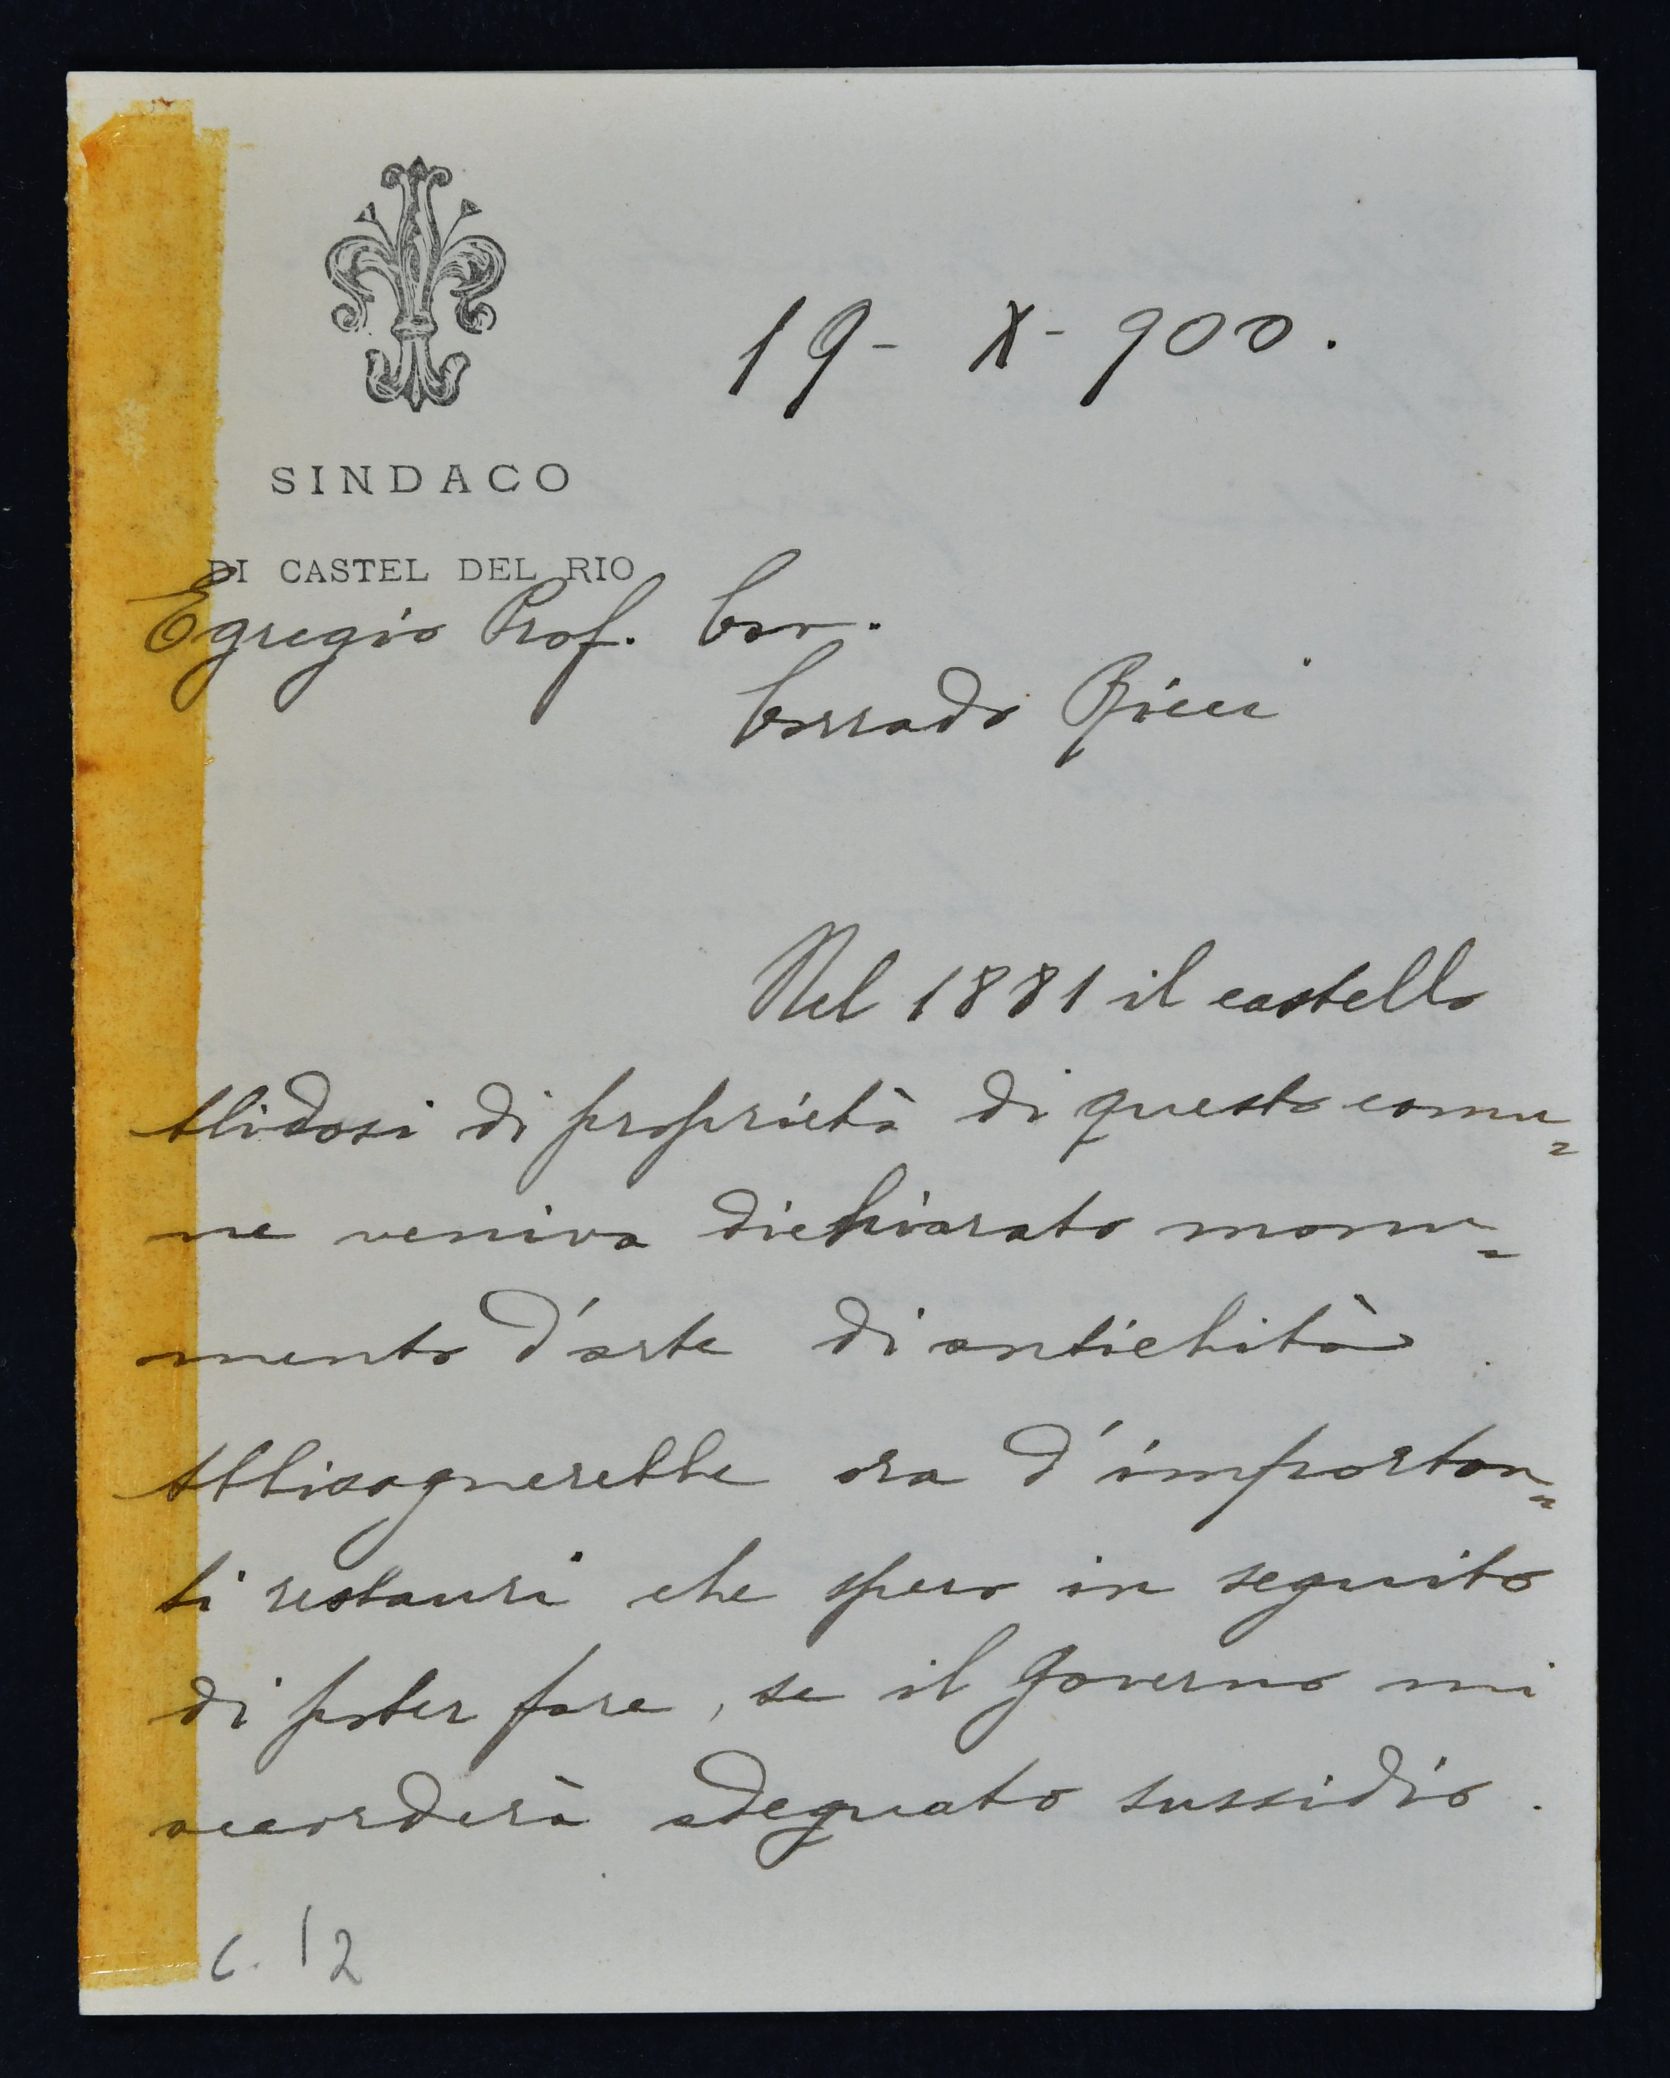 19 - X - 900.
SINDACO
DI CASTEL DEL RIO
Egregio Prof. Cav.
Corrado Ricci
Nel 1881 il castello
Alidosi di proprietà di questo comu=
ne veniva dichiarato monu=
mento d'arte di antichità
Abbisognerebbe ora d'importan=
ti restauri che spero in seguito
di poter fare, se il Governo mi
accorderà adeguato sussidio.
c. 12